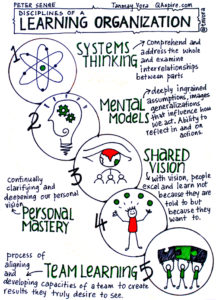 PETER SENGE
Tanmay Vora @Aspire.com
DISCIPLINES OF A
LEARNING ORGANIZATION
@tnvora
1
SYSTEMS
THINKING
Comprehend and
address the whole
and examine
interrelationships
between parts
2
MENTAL
MODELS
deeply ingrained
assumptions, images
generalizations,
that influence how
we act. Ability to
reflect in and on
actions.
3
SHARED
VISION
with vision, people
excel and learn not
because they are
told to but
because they
want to.
continually
clarifying and
deepening our personal
vision
PERSONAL
MASTERY
4
process of
aligning
and
developing capacities of a team to create
results they truly desire to see.
TEAM LEARNING
5